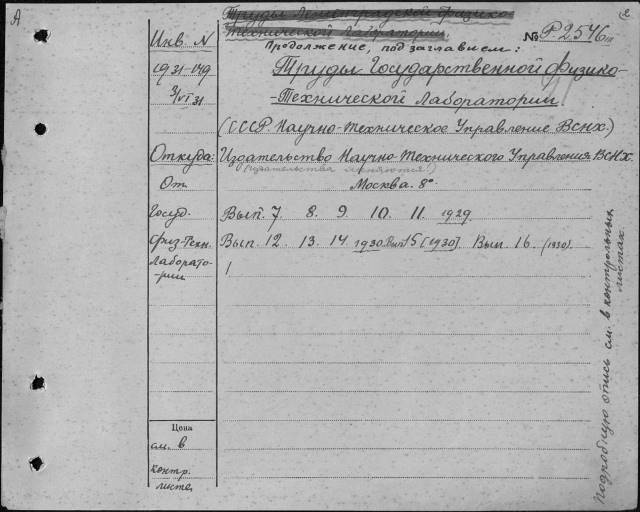 А
2
Труды Ленинградской Физико-
Технической Лаборатории
№ Р.2546
Продолжение, под заглавием:
Труды Государственной Физико-
-Технической Лаборатории.
(СССР. Научно-техническое Управление ВСНХ.)
Издательство Научно-Технического Управления ВСНХ.
(издательства меняются)
Москва. 8°
Вып. 7. 8. 9. 10. 11. 1929
Вып. 12. 13. 14. 1930. Вып 15 [1930] Вып. 16. (1930).
1
Инв. N
1931-049
3/VI 31
Откуда:
От
Госуд.
Физ-Техн.
Лаборато-
-рии
Цена
см. в
контр.
листе
Подробную опись см. в контрольных
листах.